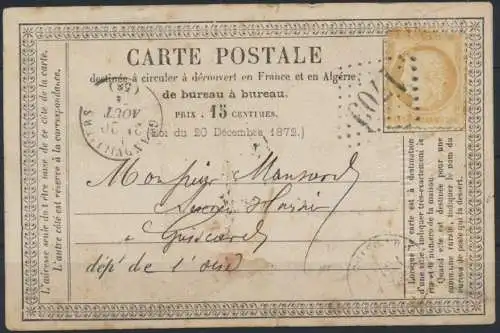 CARTE POSTALE
destinée à circuler à découvert en France et en Algérie,
de bureau à bureau.
PRIX : 15 CENTIMES.
(Loi du 20 Décembre 1872.)
AOUT
Monsieur
à Guiscard
dépt de l'oise
L'adresse seule doit être mise de ce côté de la carte.
L'autre côté est réservé à la correspondance.
Lorsque la carte est à destination
d'une ville, indiquer très-exactement la
rue et le numéro de la maison.
Quand elle est destinée pour une
commune rurale, indiquer le nom du
bureau de poste qui la dessert.